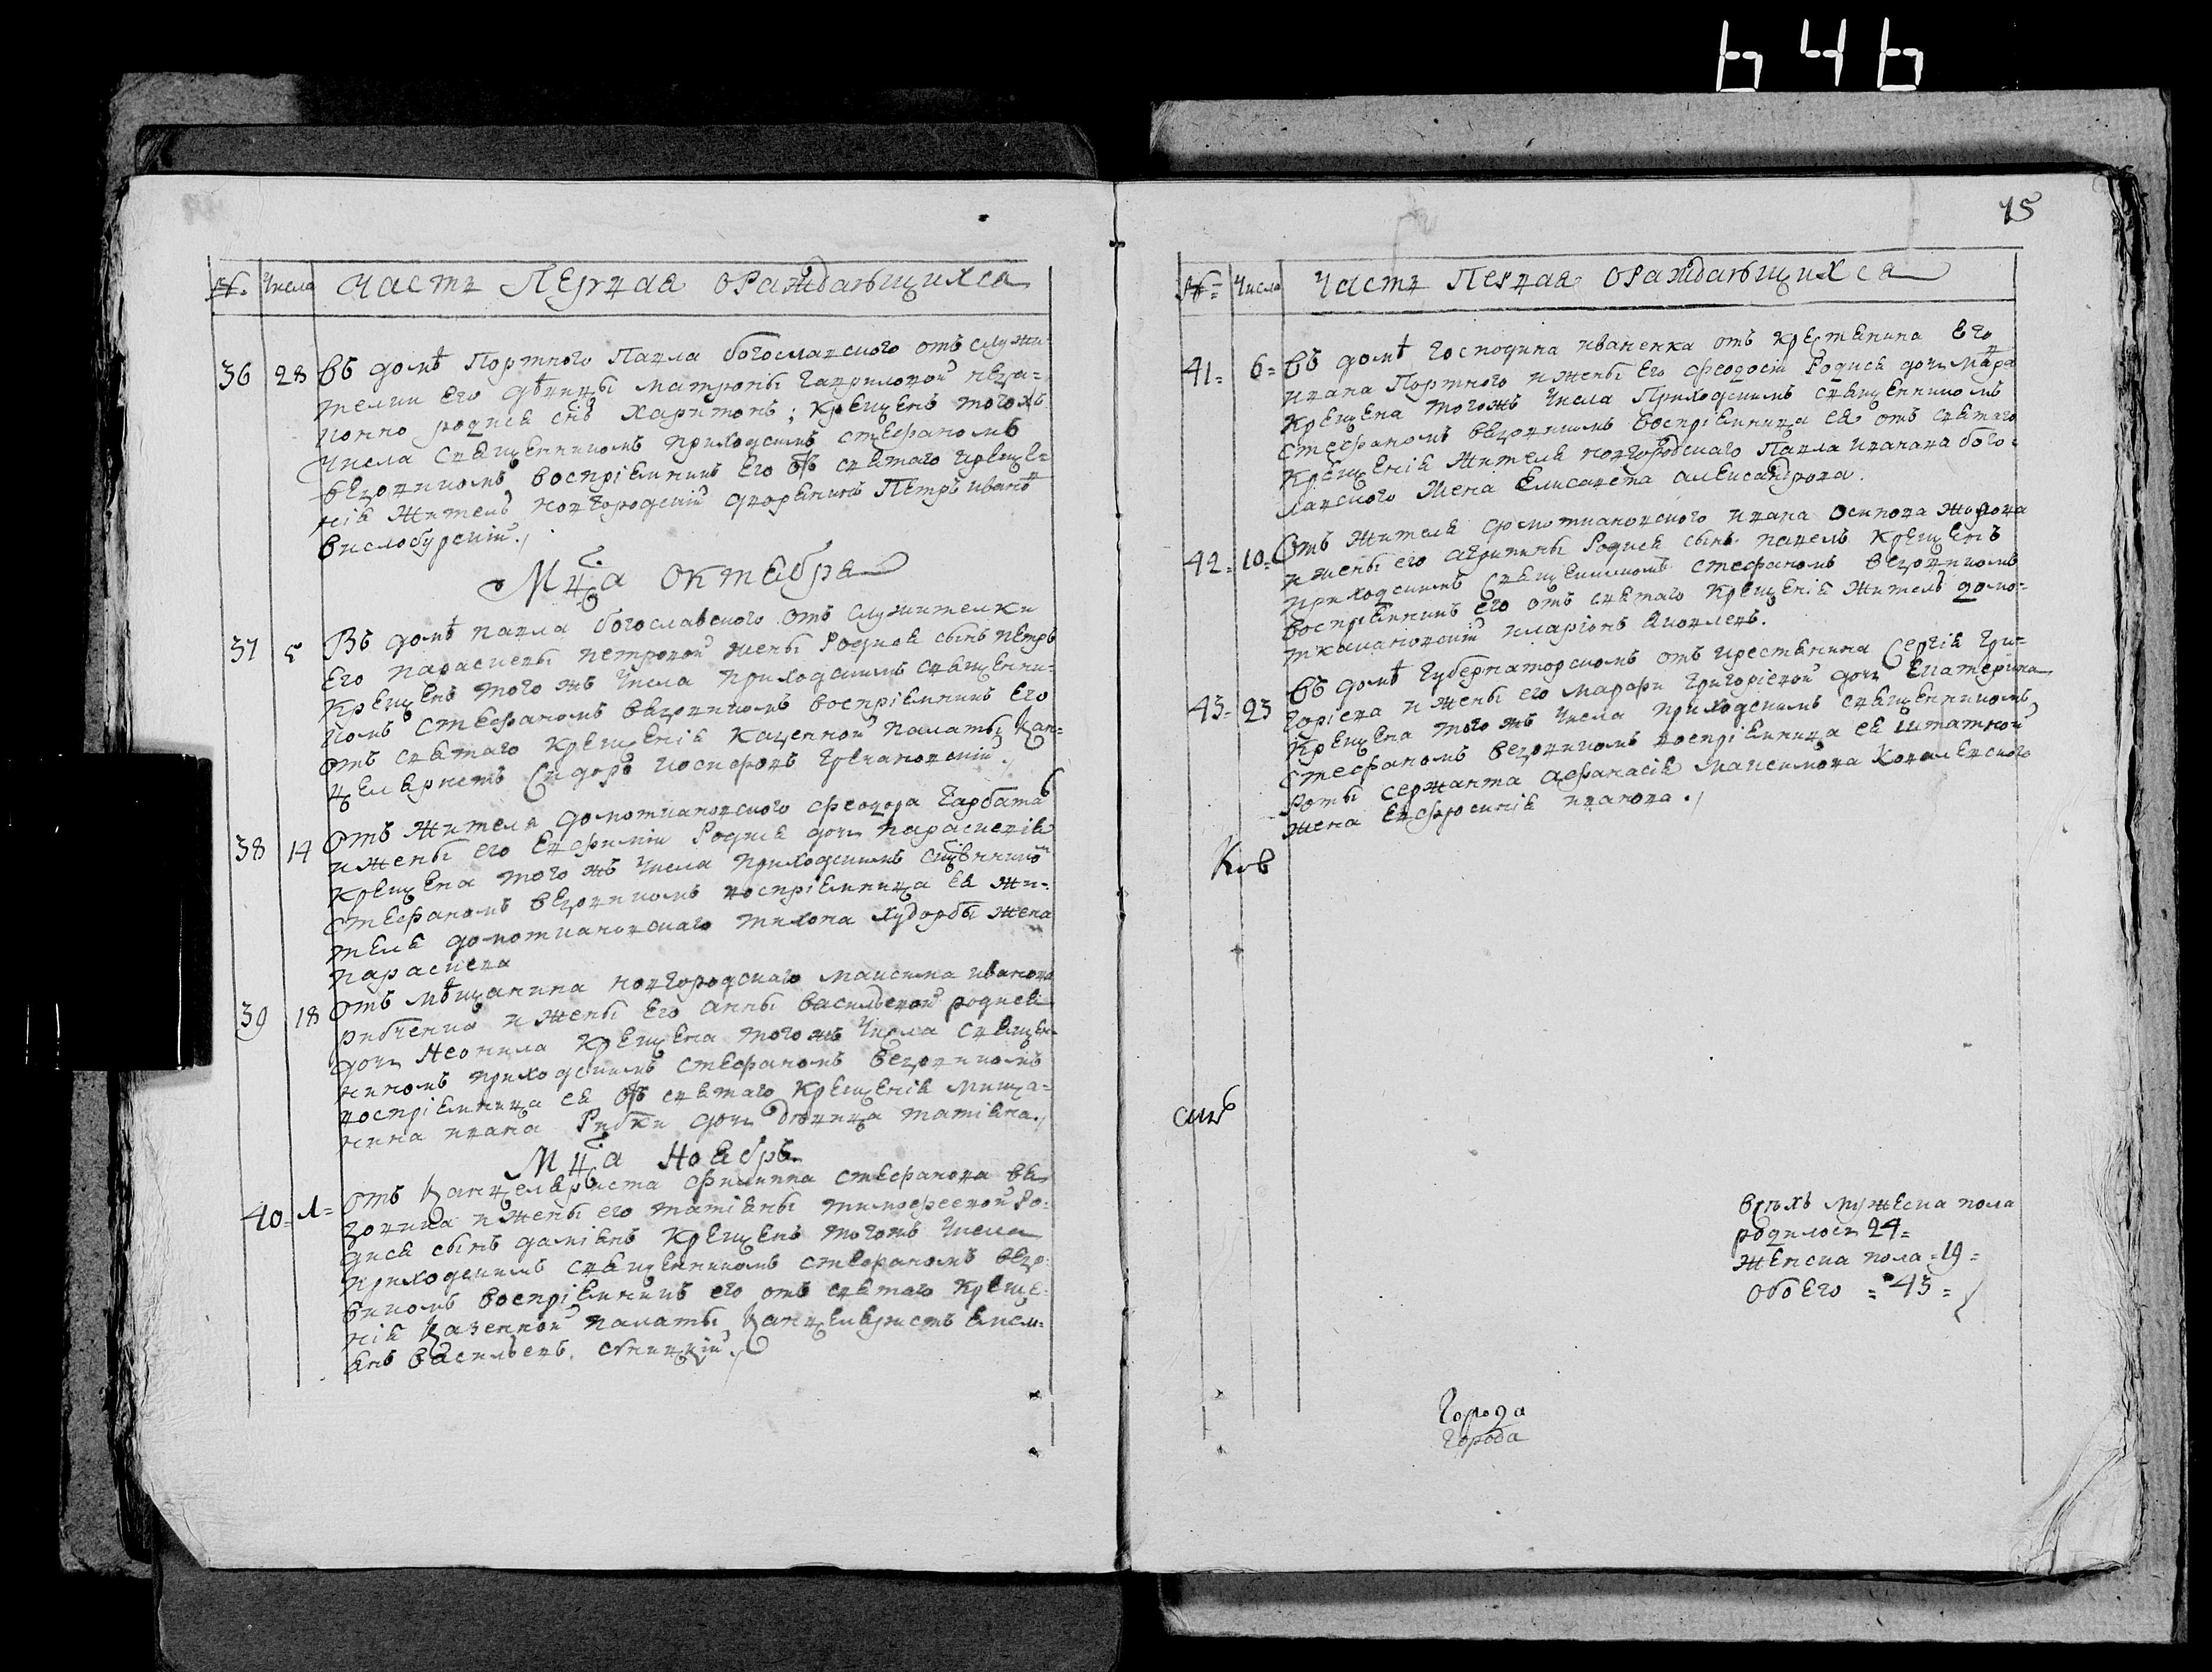 646
№. Числа Часть Первая ораждающихся
36 28 Въ домѣ Портного Павла богославского отъ служи-
телки его дѣвицы матроны Гавриловой неза-
конно родися снъ Харитонъ; Крещенъ тогожъ
Числа Священникомъ приходскимъ стефаномъ
воспріемникъ Его отъ святаго Креще-
нія Житель новгородскій дворянинъ Петръ ивановъ
вислобурскій.
Мца октября
37 5 Въ домѣ павла богославского отъ служителки
Его параскевы петровой жены Родися сынъ петръ
Крещенъ того жъ Числа приходскимъ священни-
комъ Стефаномъ воспріемникъ Его
отъ святаго Крещенія Казенной палаты Кан-
целяристъ Сидоръ иосифовъ Гречановскій.
38 14 Отъ Жителя домоткановского феодора Гарбата
и жены его Евфиміи Родися дочь параскевія
Крещена того жъ Числа приходскимъ сщенникомъ
Стефаномъ воспріемница ея жи-
теля домоткановскаго тихона худорбы жена
параскева
39 18 Отъ мѣщанина новгородскаго максима иванова
рибченка и жены Его анны васильевой родися
дочь Неонила Крещена того жъ Числа священ-
никомъ приходскимъ стефаномъ
воспріемница ея отъ святаго Крещенія мища-
нина ивана Рибки дочь дѣвица татіяна.
Мца Ноября
40 1 Отъ Канцеляриста филиппа стефанова ве-
зовика и жены его татіяны тимофеевой Ро-
дися сынъ даміянъ Крещенъ тогожъ Числа
приходскимъ священникомъ стефаномъ везо-
викомъ воспріемникъ его отъ святаго Креще-
нія Казенной палаты Канцеляристъ Емел-
янъ васильевъ.
15
№ Число Часть Первая ораждающихся
41 6 Въ домѣ Господина иваненка отъ Крестянина Его
ивана Портного и жены Его феодосіи Родися дочь
Крещена тогожъ Числа Приходскимъ священникомъ
Стефаномъ воспріемница ея отъ святаго
Крещенія Жителя новгородскаго Павла иванова бого-
лавского Жена Елисавета александрова.
42 10 Отъ жителя домоткановского ивана осипова
и жены его агрипины Родися сынъ павелъ Крещенъ
приходскимъ Священникомъ стефаномъ
воспріемникъ его отъ святаго Крещенія житель домо-
ткановскій иларіонъ яковлевъ.
43 23 Въ домѣ Губернаторскомъ отъ крестянина Сергія Гри-
горіева и жены его марфы григоріевой дочь Екатерина
Крещена того жъ Числа приходскимъ священникомъ
стефаномъ воспріемница ея штатной
Роты сержанта афанасія максимова Ковалевского
жена Евфросинія иванова.
всѣхъ мужеска пола
родилось 24
женска пола 19
обоего 43
Города
Города